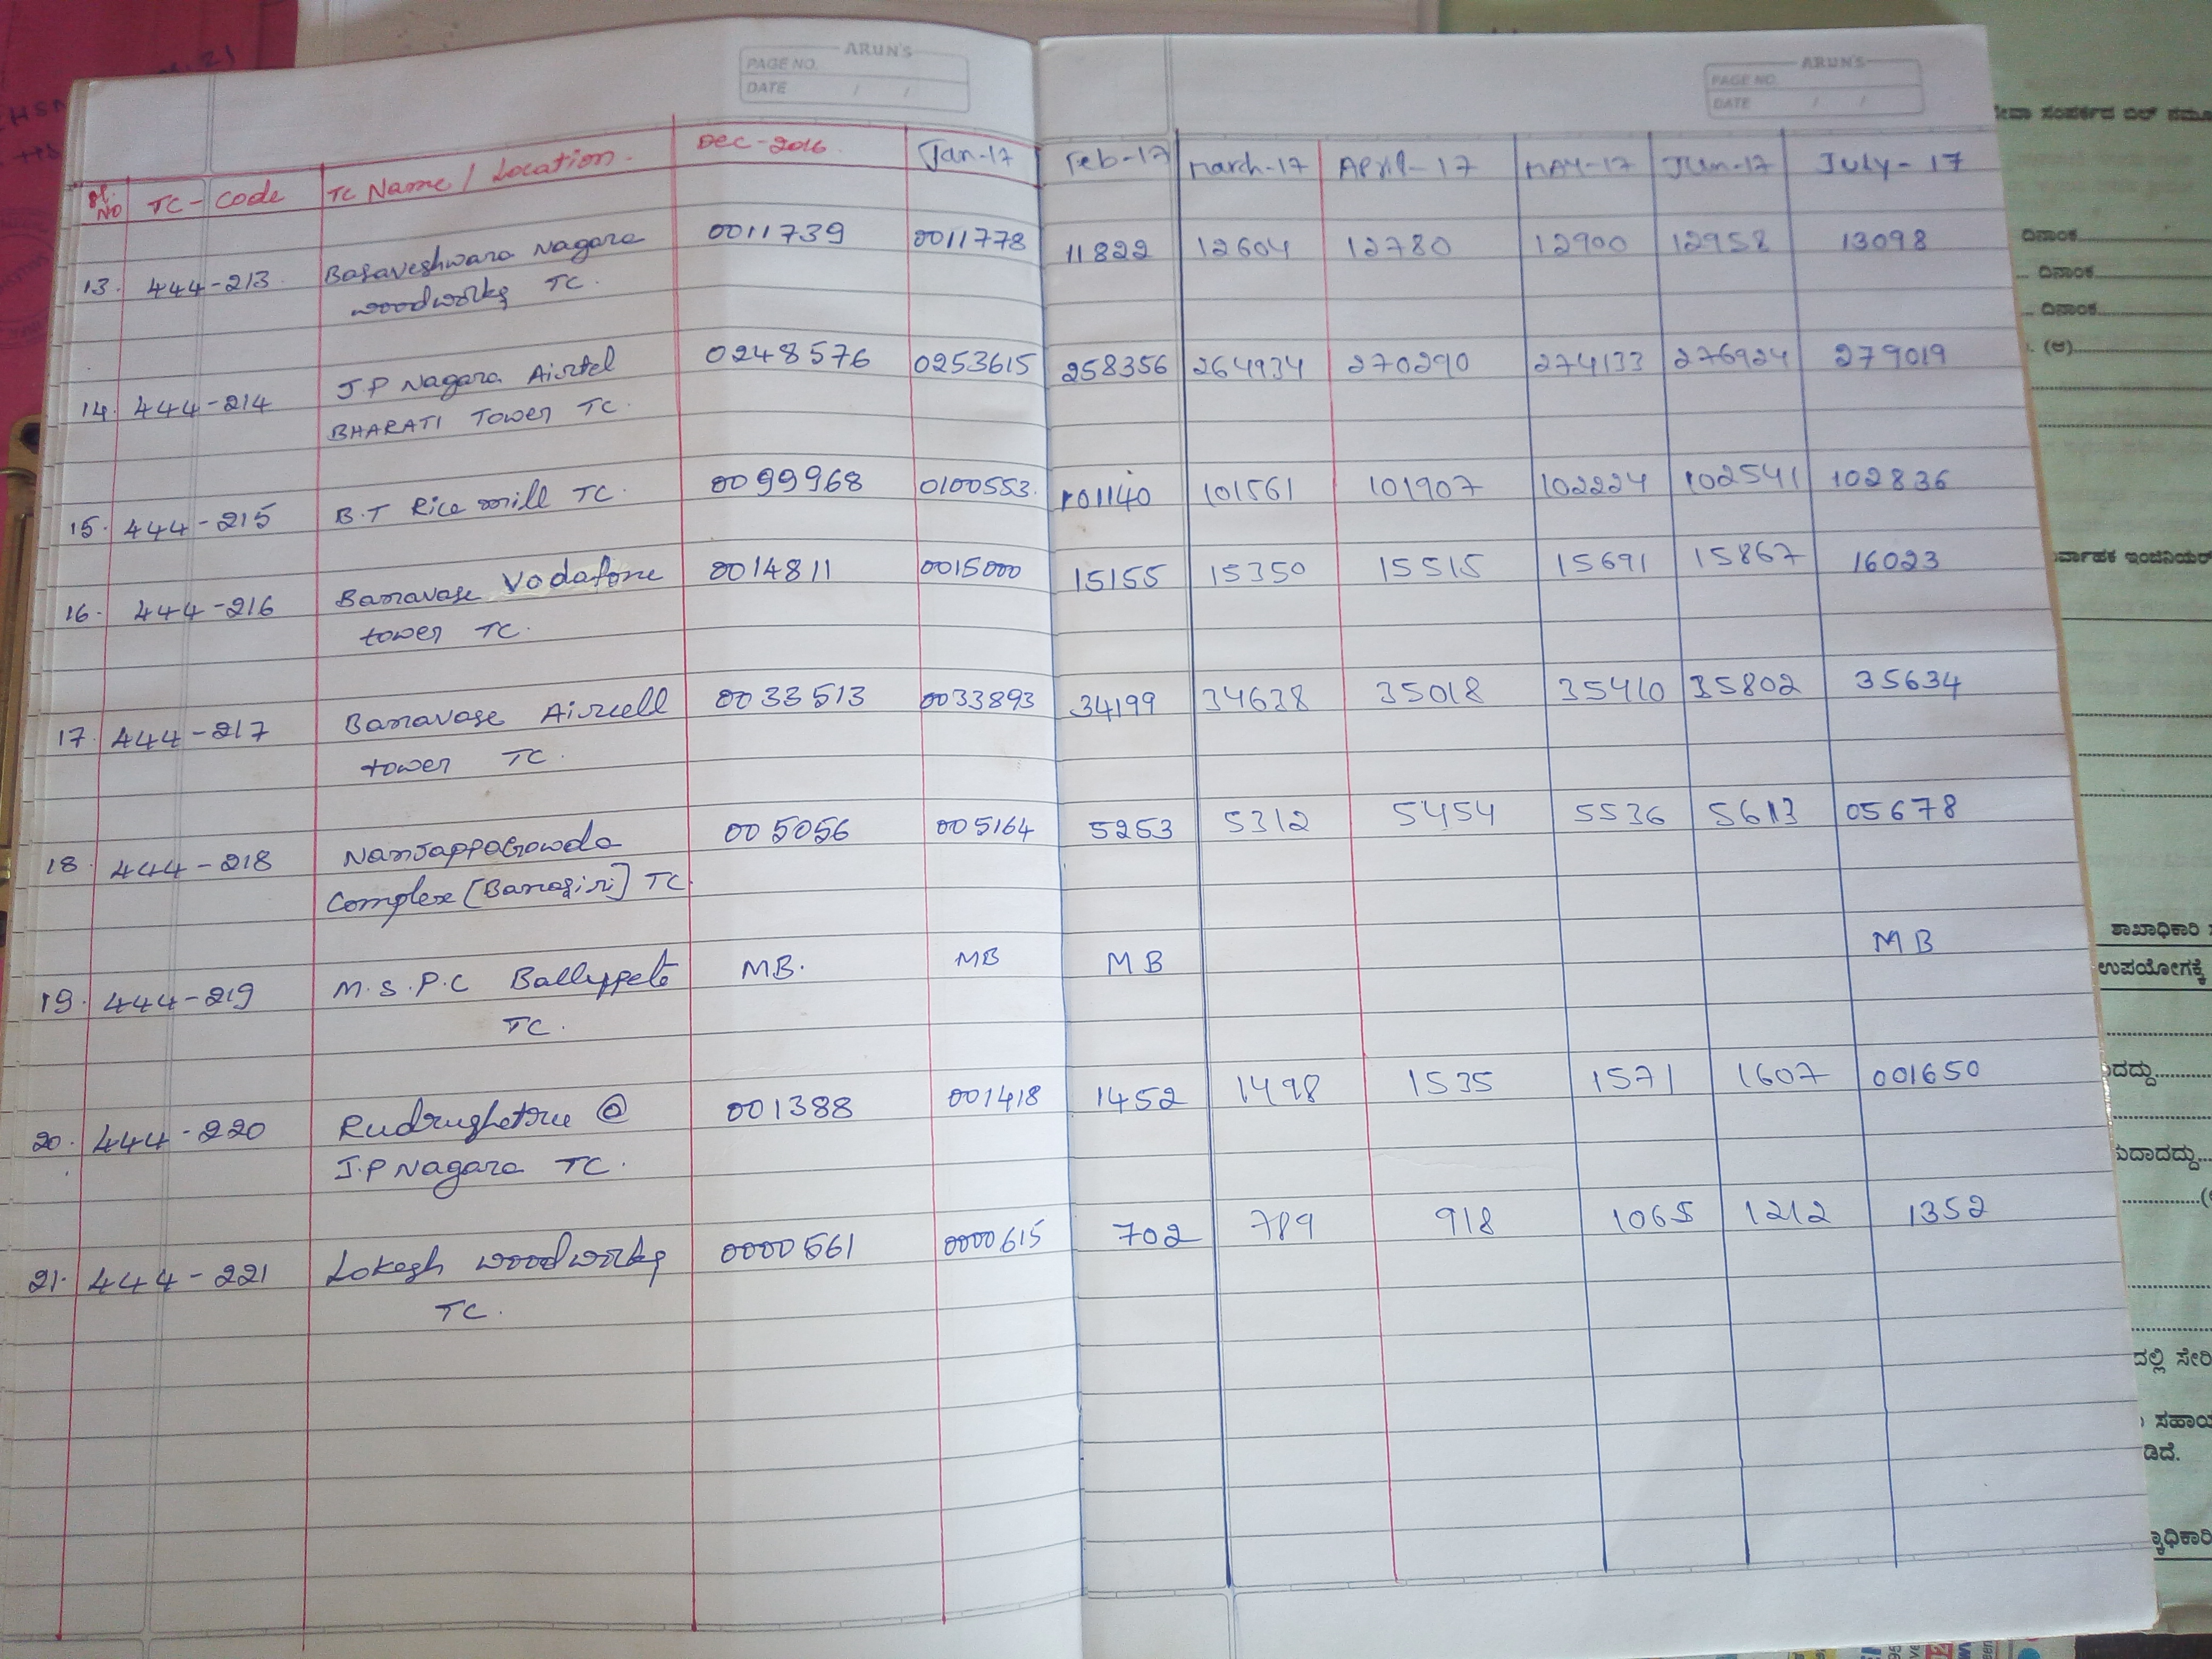 ARUN'S
PAGE NO.
DATE / /
ARUN'S
PAGE NO.
DATE / /
Sl. NO TC - Code TC Name / Location. Dec-2016. Jan-17 Feb-17 March-17 April-17 MAY-17 Jun-17 July-17
13. 444-213. Basaveshwara Nagara 0011739 0011778 11822 12604 12780 12900 12958 13098
woodworks TC.
14. 444-214 J.P Nagara Airtel 0248576 0253615 258356 264934 270290 274133 276924 279019
BHARATI Tower TC.
15. 444-215 B.T Rice mill TC. 0099968 0100553. 101140 101561 101907 102224 102541 102836
16. 444-216 Banavase Vodafone 0014811 0015000 15155 15350 15515 15691 15867 16023
tower TC.
17. 444-217 Banavase Aircell 0033513 0033893 34199 34638 35018 35410 35802 35634
tower TC.
18. 444-218 NanjappaGowda 005056 005164 5253 5312 5454 5536 5613 05678
Complex [Banagiri] TC.
19. 444-219 M.S.P.C Ballupete MB. MB MB MB
TC.
20. 444-220 Rudrushetru @ 001388 001418 1452 1498 1535 1571 1607 001650
J.P Nagara TC.
21. 444-221 Lokesh woodworks 0000561 0000615 702 789 918 1065 1212 1352
TC.
ಸೇವಾ ಸಂಪರ್ಕದ ಬಿಲ್
ದಿನಾಂಕ
ದಿನಾಂಕ
ದಿನಾಂಕ
(ಅ)
ಇಂಜಿನಿಯರ್
ಶಾಖಾಧಿಕಾರಿ
ಉಪಯೋಗಕ್ಕೆ